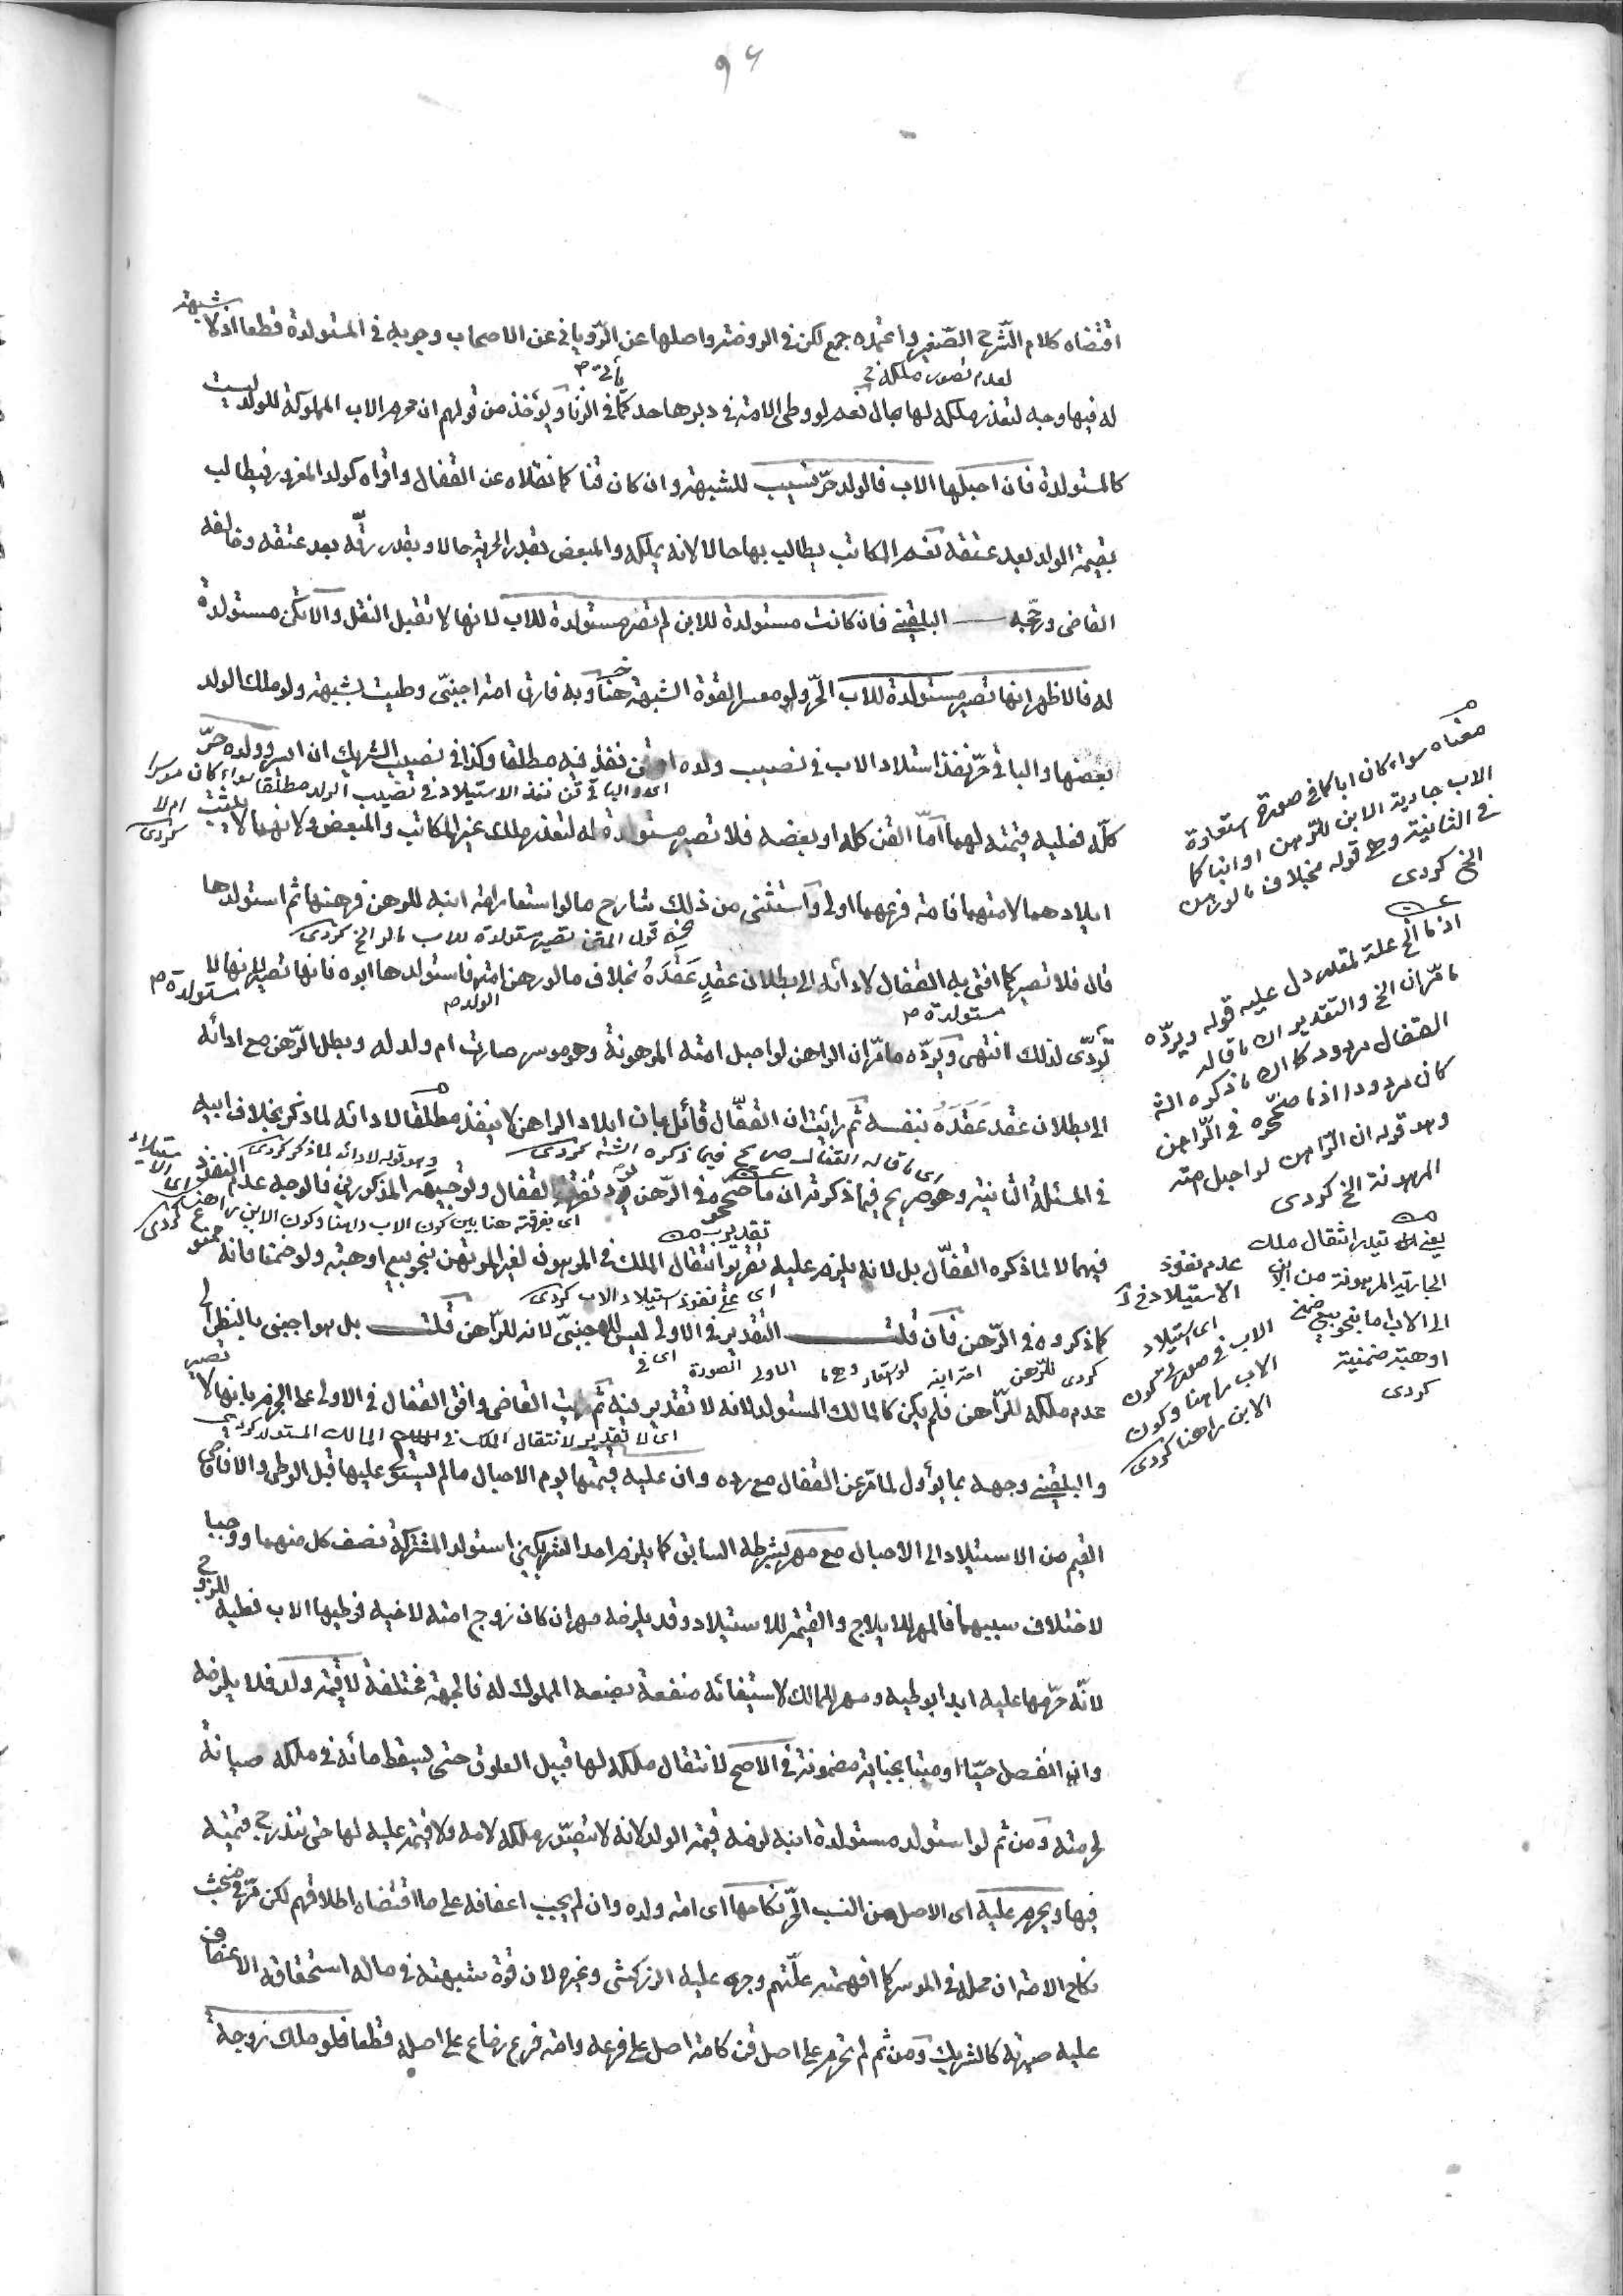 ٩٤
اقتضاه كلام الشرح الصغير واعتمده جمع لكن في الروضة واصلها عن الروياني عن الاصحاب وجوبه في المستولدة قطعا اذ لا شبهة
له فيها بوجه لتعذر ملكه لها بحال نعم لو وطئ الامة في دبرها حد كما في الزنا ويؤخذ من قولهم ان محرم الاب المملوكة للولد ليست
كالمستولدة فان احبلها الاب فالولد حر نسيب للشبهة وان كان قنا كما نقلاه عن القفال واقراه كولد المغرور فيطالب
بقيمة الولد بعد عتقه نعم المكاتب يطالب بها حالا لانه يملكه والمبعض بقدر الحرية حالا وبقدر رقه بعد عتقه وخالفه
القاضي ورجحه البلقيني فان كانت مستولدة للابن لم تصر مستولدة للاب لانها لا تقبل النقل والا تكن مستولدة
له فالاظهر انها تصير مستولدة للاب الحر ولو معسرا لقوة الشبهة هنا وبه فارق امة اجنبي وطئت بشبهة ولو ملك الولد
بعضها والباقي حر نفذ استلاد الاب في نصيب ولده او قن نفذ فيه مطلقا وكذا في نصيب الشريك ان ايسر وولده حر
اى والباقى قن نفذ الاستيلاد فى نصيب الولد مطلقا سواء كان موسرا ام لا كردى
كله فعليه قيمته لهما اما القن كله او بعضه فلا تصير مستولدة له لتعذر ملك غير المكاتب والمبعض ولانهما لا يثبت
ايلادهما لامتهما فامة فرعهما اولى واستثنى من ذلك شارح ما لو استعار امة ابنه للرهن فرهنها ثم استولدها
قال فلا تصير كما افتى به القفال لادائه الى بطلان عقد عقده بخلاف ما لو رهن امته فاستولدها ابوه فانها تصير لانها لا
مستولدة
الولد
مستولدة
تؤدى لذلك انتهى ويرده ما مر ان الراهن لو احبل امته المرهونة وهو موسر صارت ام ولد له وبطل الرهن مع ادائه
الى بطلان عقد عقده بنفسه ثم رأيت ان القفال قائل بان ايلاد الراهن لا ينفذ مطلقا لادائه لما ذكر بخلاف ابيه
وهو قوله لادائه لما ذكر كردى
في المسئلة الثانية وهو صريح فيما ذكرته ان ما صححوه في الرهن يرد تفرقة القفال وتوجيهه المذكورين فالوجه عدم النفوذ
اى تفرقته هنا بين كون الاب راهنا وكون الابن راهنا كردى
فيهما لا لما ذكره القفال بل لانه يلزم عليه تقدير انتقال الملك في المرهون لغير المرتهن بنحو بيع او هبة ولو ضمنا فانه
اى على نفوذ استيلاد الاب كردى
كما ذكروه في الرهن فان قلت التقدير في الاولى ليس للاجنبي لانه للراهن قلت بل هو اجنبي بالنظر الى
عدم ملكه للراهن فلم يكن كالمالك المستولد لانه لا تقدير فيه ثم رأيت القاضي وافق القفال في الاولى على الجزم بانها لا تصير
اى لا تقدير لانتقال الملك فى المالك المستولد كردى
والبلقيني وجهه بما يؤول لما مر عن القفال مع رده وان عليه قيمتها يوم الاحبال ما لم يستول عليها قبل الوطي والا فاقصى
القيم من الاستيلاد الى الاحبال مع مهر بشرطه السابق كما يلزم احد الشريكين استولد المشتركة نصف كل منهما ووجبا
لاختلاف سببهما فالمهر للايلاج والقيمة للاستيلاد وقد يلزمه مهران كان زوج امته لاخيه فوطيها الاب فعليه للزوج
لانه حرمها عليه ابدا بوطيه ومهر للمالك لاستيفائه منفعة بضعه المملوك له فالجهة مختلفة لا قيمة ولد فلا يلزمه
وان انفصل حيا او ميتا بجناية مضمونة في الاصح لانتقال ملكه لها قبيل العلوق حتى يسقط مائه في ملكه صيانة
لحرمته ومن ثم لو استولد مستولدة ابنه لزمه قيمة الولد لانه لا يتصور ملكه لامه ولا قيمة عليه لها حتى تندرج قيمته
فيها ويحرم عليه اى الاصل من النسب الحر نكاحها اى امة ولده وان لم يجب اعفافه على ما اقتضاه اطلاقهم لكن مر في مبحث
نكاح الامة ان محله في الموسر كما افهمته علتهم وجرى عليه الزركشي وغيره لان قوة شبهته في ماله استحقاقه الاعفاف
عليه صيرته كالشريك ومن ثم لم تحرم على اصل قن كامة اصل على فرعه وامة فرع رضاع على اصله قطعا فلو ملك زوجة
معناه سواء كان ابا كما في صورة استعارة
الاب جارية الابن للرهن او ابنا كما
في الثانية وهى قوله بخلاف ما لو رهن
الخ كردى
اذ ما الخ علة لمقدر دل عليه قوله ويرده
ما مر ان الخ والتقدير ان ما قاله
القفال مردود كما ان ما ذكره الشـ
كان مردودا اذ ما صححوه في الراهن
وهو قوله ان الراهن لو احبل امته
المرهونة الخ كردى
تقدير انتقال ملك
الجارية المرهونة من الابن
الى الاب اما بنحو بيع ضمنى
او هبة ضمنية
كردى
عدم نفوذ
الاستيلاد
اى استيلاد
الاب في صورتى كون
الاب راهنا وكون
الابن راهنا كردى